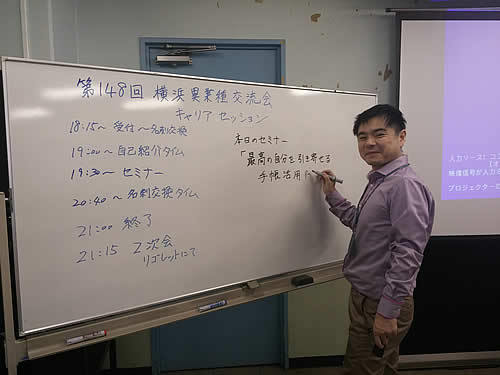 第148回 横浜異業種交流会
キャリアセッション
18:15〜 受付〜名刺交換
19:00〜 自己紹介タイム
19:30〜 セミナー
20:40〜 名刺交換タイム
21:00 終了
21:15 2次会
リゴレットにて
本日のセミナー
「最高の自分を引き寄せる
手帳活用
入力ソース：コン
映像信号が入力さ
プロジェクターの